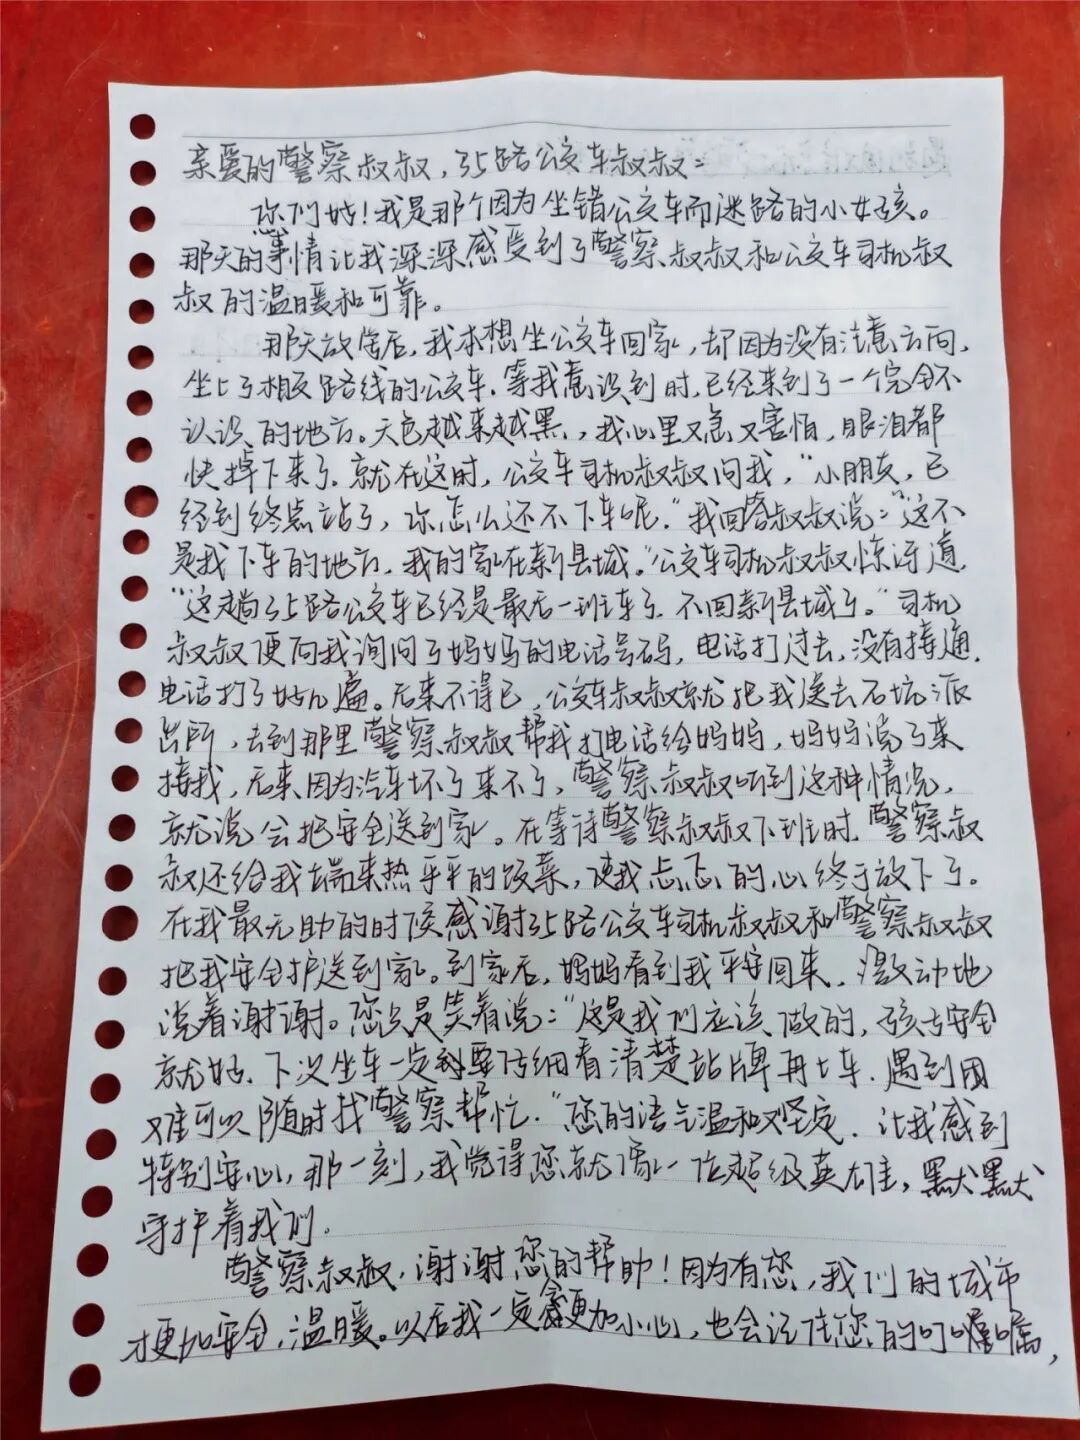 亲爱的警察叔叔，35路公交车叔叔：
您们好！我是那个因为坐错公交车而迷路的小女孩。
那天的事情让我深深感受到了警察叔叔和公交车司机叔
叔的温暖和可靠。
那天放学后，我本想坐公交车回家，却因为没有注意方向，
坐上了相反路线的公交车．等我意识到时，已经来到了一个完全不
认识的地方。天色越来越黑，我心里又急又害怕，眼泪都
快掉下来了．就在这时，公交车司机叔叔问我，“小朋友，已
经到终点站了，你怎么还不下车呢．”我回答叔叔说：“这不
是我下车的地方．我的家在新县城。”公交车司机叔叔惊讶道．
“这趟35路公交车已经是最后一班车了．不回新县城了。”司机
叔叔便向我询问了妈妈的电话号码，电话打过去，没有接通．
电话打了好几遍。后来不得已，公交车叔叔就把我送去石坑派
出所，去到那里警察叔叔帮我打电话给妈妈，妈妈说了来
接我，后来因为汽车坏了来不了，警察叔叔听到这种情况，
就说会把安全送到家。在等待警察叔叔下班时．警察叔
叔还给我端来热乎乎的饭菜，使我忐忑的心终于放下了。
在我最无助的时候感谢35路公交车司机叔叔和警察叔叔
把我安全护送到家。到家后，妈妈看到我平安回来，激动地
说着谢谢。您只是笑着说：“这是我们应该做的，孩子安全
就好．下次坐车一定要仔细看清楚站牌再上车．遇到困
难可以随时找警察帮忙．”您的语气温和又坚定．让我感到
特别安心，那一刻，我觉得您就像一位超级英雄，默默
守护着我们．
警察叔叔，谢谢您的帮助！因为有您，我们的城市
才更加安全，温暖。以后我一定会更加小心，也会记住您的叮嘱，